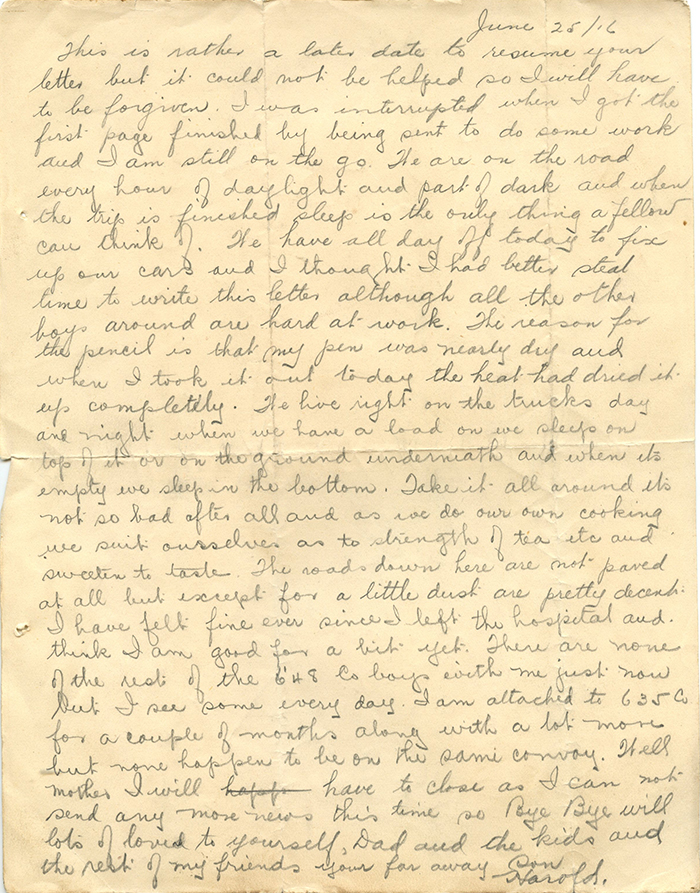 June 25/16
This is rather a later date to resume your
letter but it could not be helped so I will have
to be forgiven. I was interrupted when I got the
first page finished by being sent to do some work
and I am still on the go. We are on the road
every hour of daylight and part of dark and when
the trip is finished sleep is the only thing a fellow
can think of. We have all day off today to fix
up our cars and I thought I had better steal
time to write this letter although all the other
boys around are hard at work. The reason for
the pencil is that my pen was nearly dry and
when I took it out today the heat had dried it
up completely. We live right on the trucks day
and night when we have a load on we sleep on
top of it or on the ground underneath and when its
empty we sleep in the bottom. Take it all around its
not so bad after all and as we do our own cooking
we suit ourselves as to strength of tea etc and
sweeten to taste. The roads down here are not paved
at all but except for a little dust are pretty decent.
I have felt fine ever since I left the hospital and
think I am good for a bit yet. There are none
of the rest of the 648 Co boys with me just now
but I see some every day. I am attached to 635 Co
for a couple of months along with a lot more
but none happen to be on the same convoy. Well
mother I will happe have to close as I can not
send any more news this time so Bye Bye will
lots of loved to yourself, Dad and the kids and
the rest of my friends your far away son
Harold.